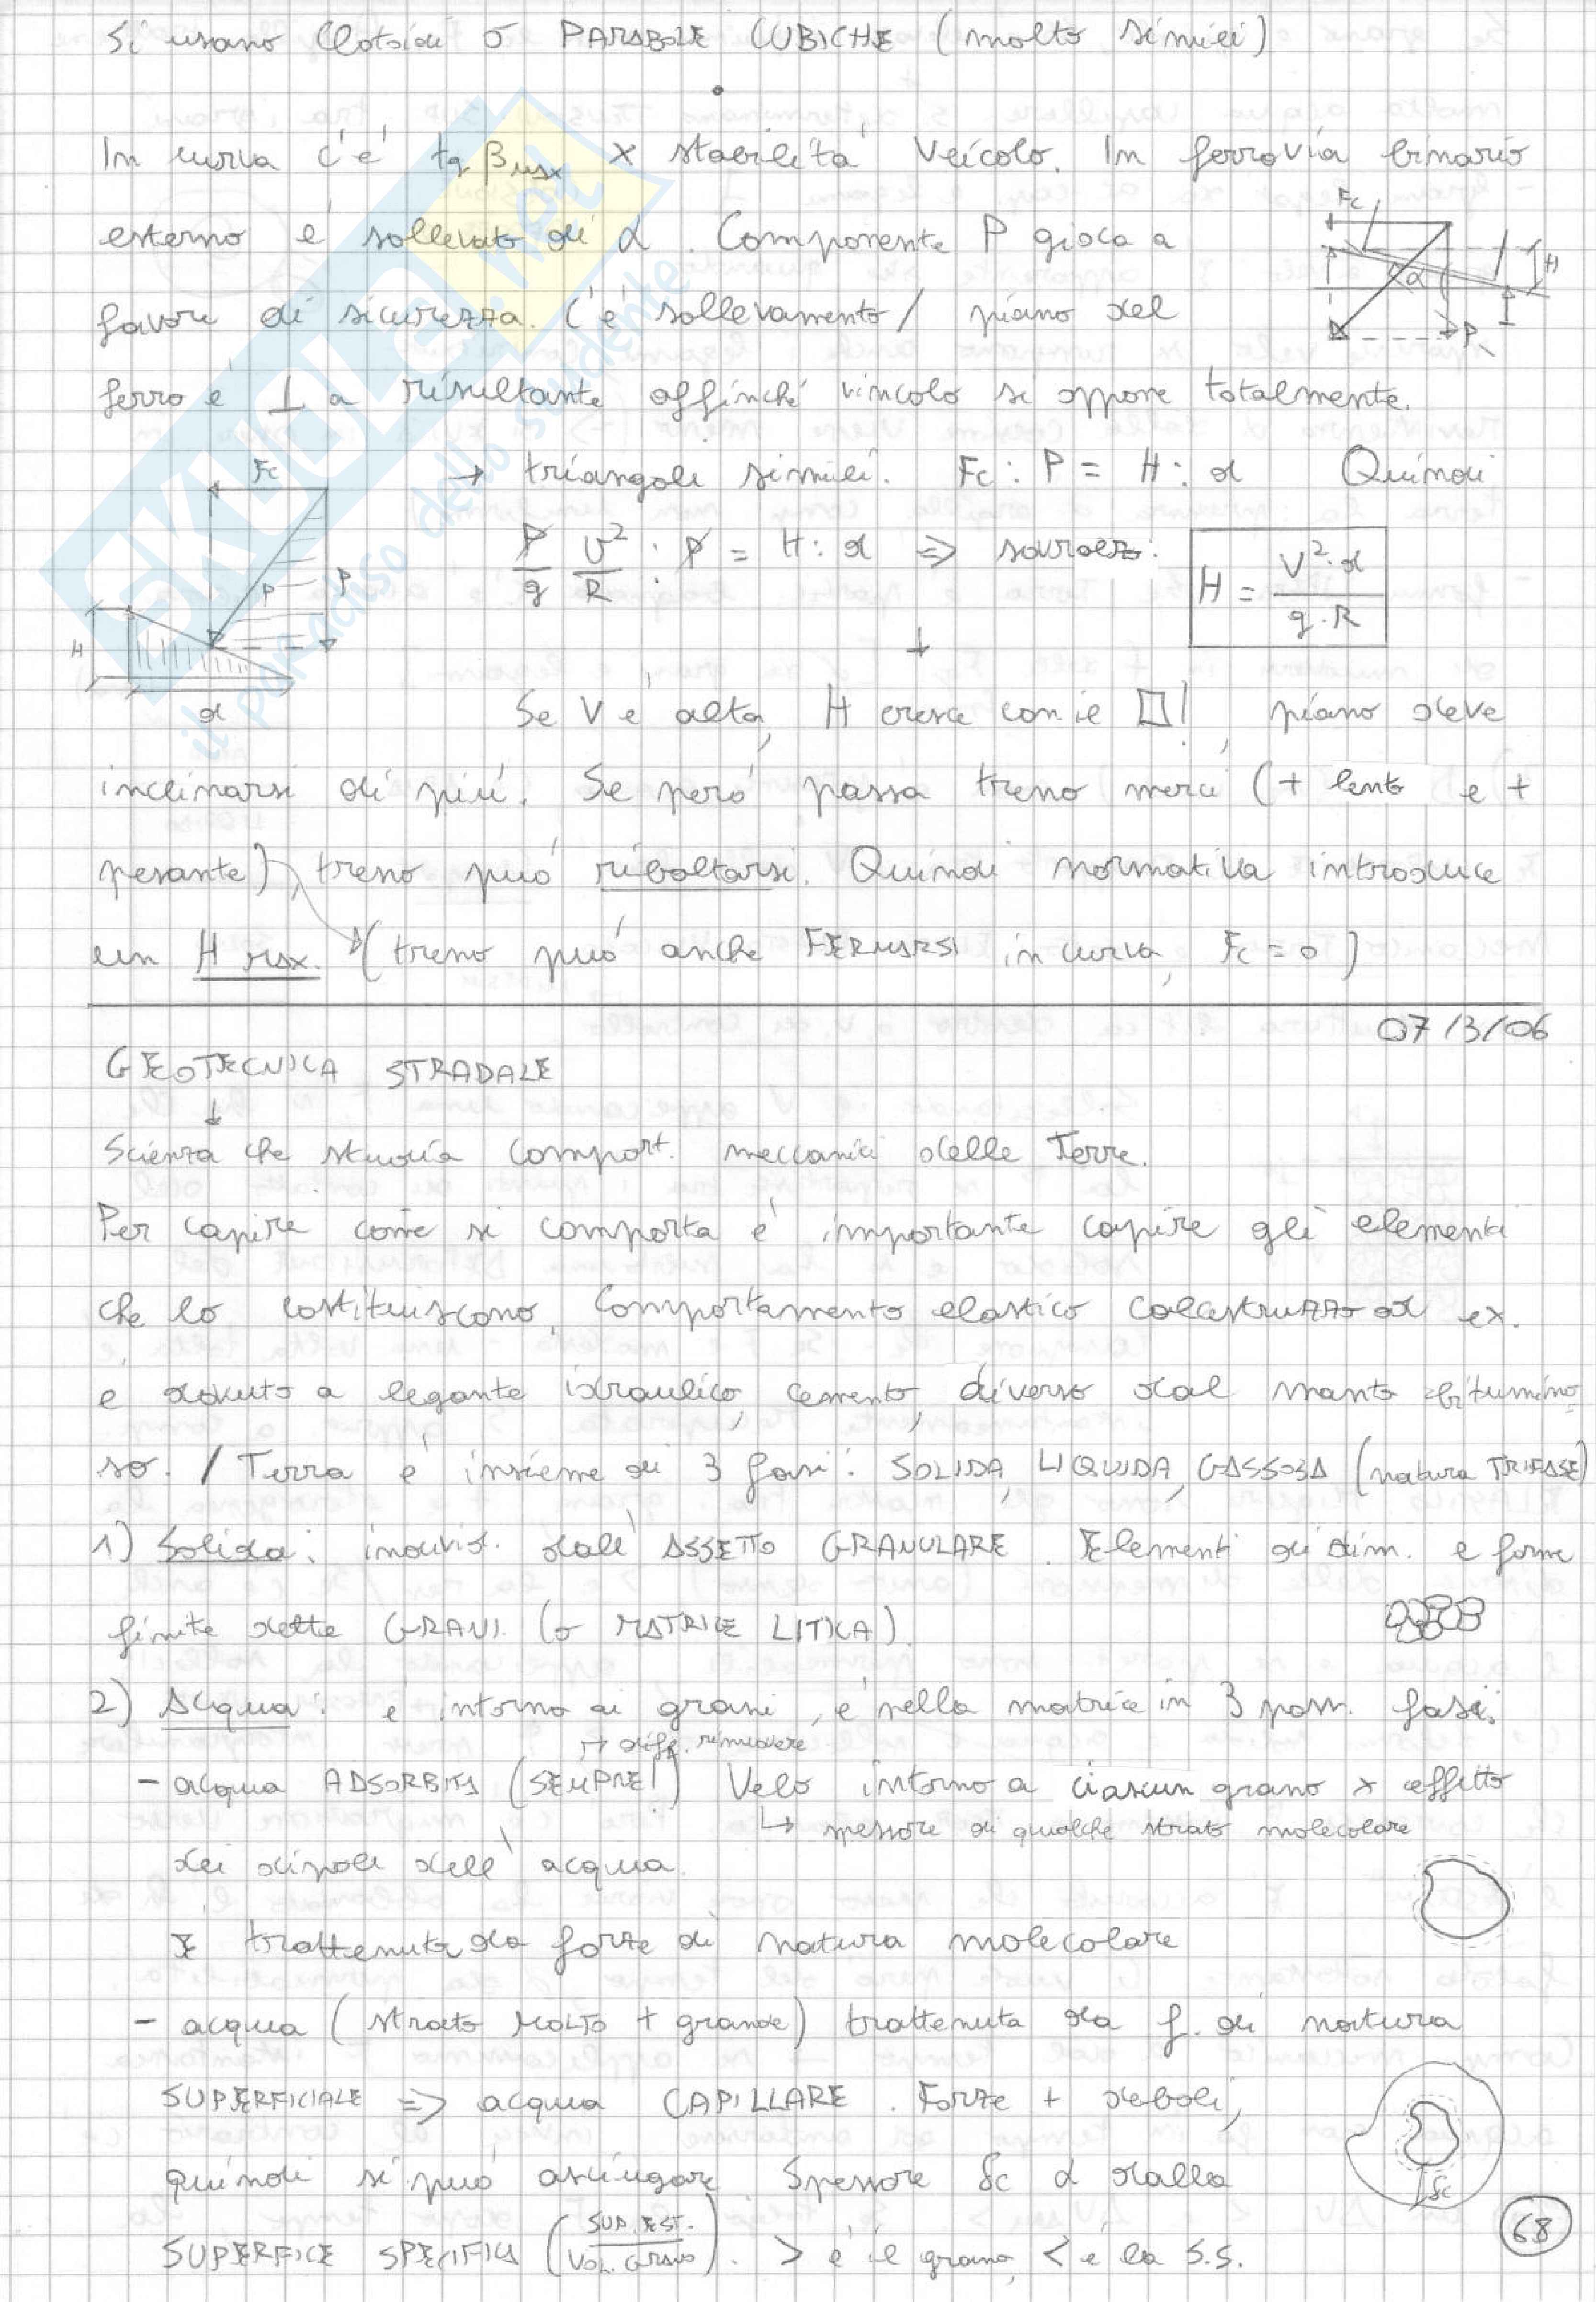 Si usano Clotoidi o PARABOLE CUBICHE (molto simili)
In curva c'è tg βmax x stabilità veicolo. In ferrovia binario
esterno è sollevato di α. Componente P gioca a
favore di sicurezza. C'è sollevamento / piano del
ferro è ⊥ a risultante affinché vincolo si oppone totalmente.
Fc
α
H
P
→ triangoli simili. Fc : P = H : d Quindi
P/g V²/R : P = H : d ⇒ sovralzo: H = V²·d / g·R
Fc
P
P
H
d
↓
Se V è alta, H cresce con il □!, piano deve
inclinarsi di più. Se però passa treno merci (+ lento e +
pesante), treno può ribaltarsi. Quindi normativa introduce
un H max. (treno può anche FERMARSI in curva, Fc = 0)
07/3/06
GEOTECNICA STRADALE
↓
Scienza che studia comport. meccanici delle Terre.
Per capire come si comporta è importante capire gli elementi
che lo costituiscono. Comportamento elastico calcestruzzo ad ex.
è dovuto a legante idraulico, cemento, diverso dal manto bitumino
so. / Terra è insieme di 3 fasi: SOLIDA, LIQUIDA, GASSOSA (natura TRIFASE)
1) Solida: individ. dall'ASSETTO GRANULARE. Elementi di dim. e forme
finite dette GRANI (o MATRICE LITICA).
2) Acqua: è intorno ai grani, è nella matrice in 3 poss. fasi:
→ diff. rimuovere
- acqua ADSORBITA (SEMPRE!) Velo intorno a ciascun grano x effetto
↳ spessore di qualche strato molecolare
dei dipoli dell'acqua.
È trattenuta da forze di natura molecolare
- acqua (strato MOLTO + grande) trattenuta da f. di natura
SUPERFICIALE ⇒ acqua CAPILLARE. Forze + deboli,
quindi si può asciugare. Spessore δc α dalla
δc
SUPERFICE SPECIFICA (SUP. EST. / VOL. GRANO). > è il grano, < è la S.S.
68